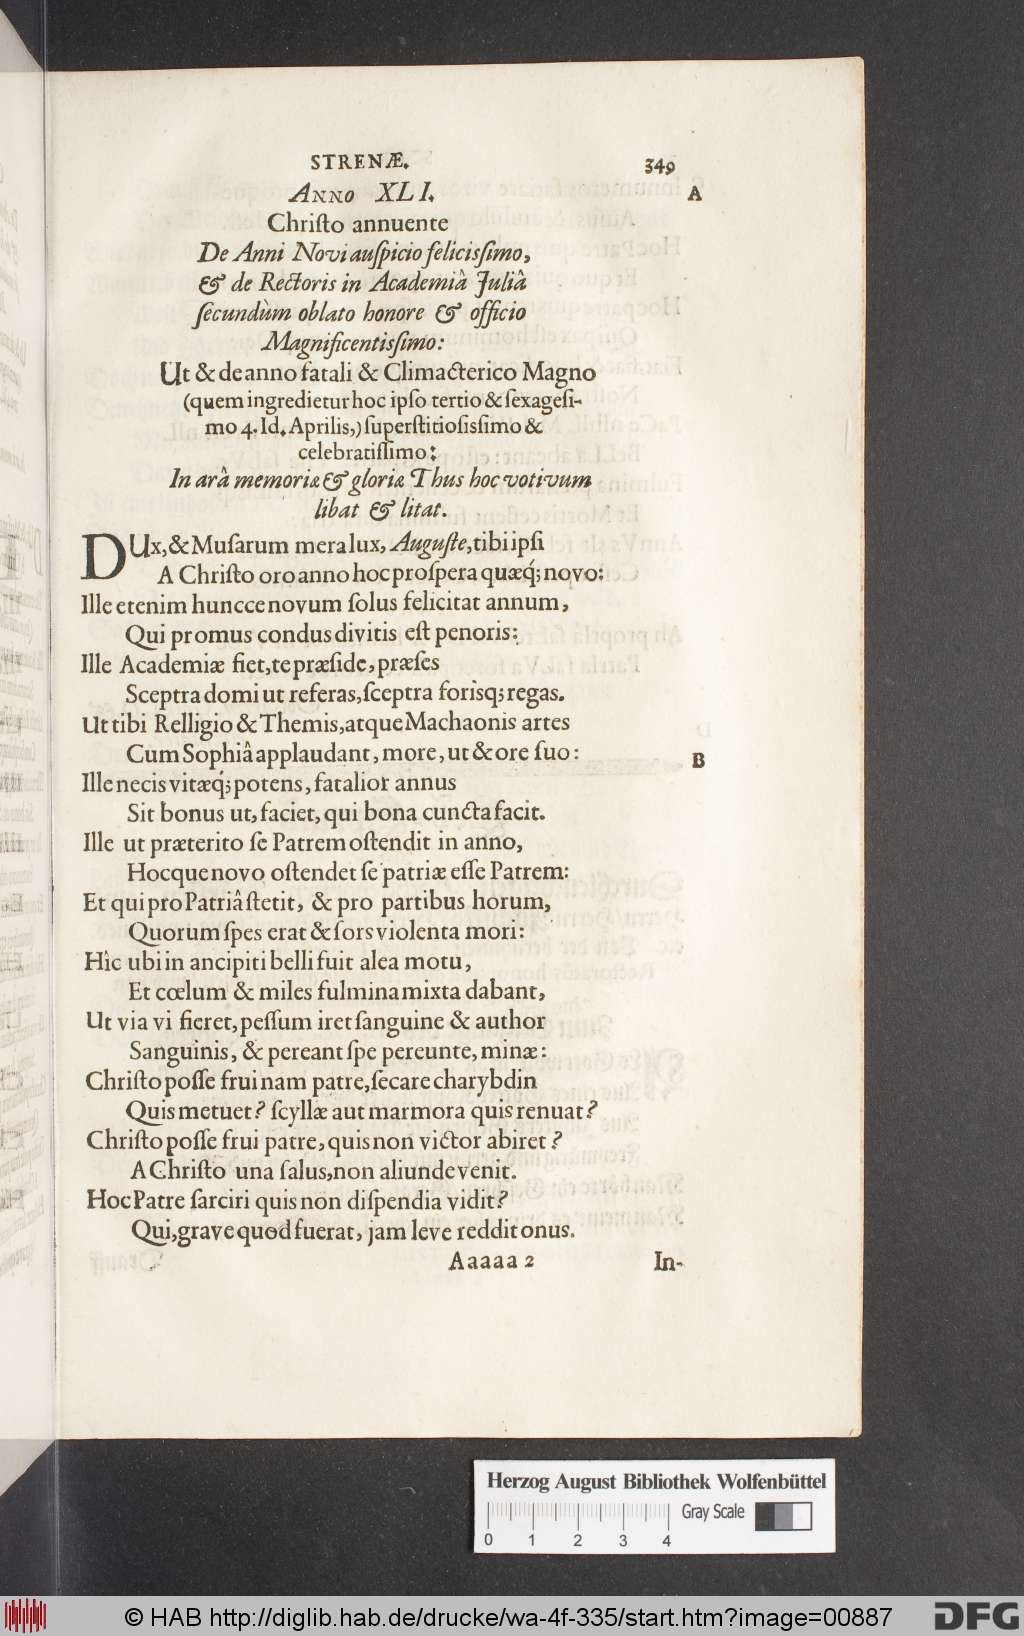 STRENÆ. 349
ANNO XLI. A
Chriſto annuente
De Anni Novi auſpicio feliciſsimo,
& de Rectoris in Academiâ Juliâ
ſecundùm oblato honore & officio
Magnificentiſsimo:
Ut & de anno fatali & Climacterico Magno
(quem ingredietur hoc ipſo tertio & ſexageſi-
mo 4. Id. Aprilis,) ſuperſtitioſiſsimo &
celebratiſſimo:
In arâ memoriæ & gloriæ Thus hoc votivum
libat & litat.
DUx, & Muſarum mera lux, Auguſte, tibi ipſi
A Chriſto oro anno hoc proſpera quæq́; novo:
Ille etenim huncce novum ſolus felicitat annum,
Qui promus condus divitis eſt penoris:
Ille Academiæ fiet, te præſide, præſes
Sceptra domi ut referas, ſceptra forìsq; regas.
Ut tibi Relligio & Themis, atque Machaonis artes
Cum Sophiâ applaudant, more, ut & ore ſuo: B
Ille necis vitæq́; potens, fatalior annus
Sit bonus ut, faciet, qui bona cuncta facit.
Ille ut præterito ſe Patrem oſtendit in anno,
Hocque novo oſtendet ſe patriæ eſſe Patrem:
Et qui pro Patriâ ſtetit, & pro partibus horum,
Quorum ſpes erat & ſors violenta mori:
Hîc ubi in ancipiti belli fuit alea motu,
Et cœlum & miles fulmina mixta dabant,
Ut via vi fieret, peſſum iret ſanguine & author
Sanguinis, & pereant ſpe pereunte, minæ:
Chriſto poſſe frui nam patre, ſecare charybdin
Quis metuet? ſcyllæ aut marmora quis renuat?
Chriſto poſſe frui patre, quis non victor abiret?
A Chriſto una ſalus, non aliunde venit.
Hoc Patre ſarciri quis non diſpendia vidit?
Qui, grave quod fuerat, jam leve reddit onus.
Aaaaa 2 In-
Herzog August Bibliothek Wolfenbüttel
Gray Scale
0 1 2 3 4
© HAB http://diglib.hab.de/drucke/wa-4f-335/start.htm?image=00887 DFG